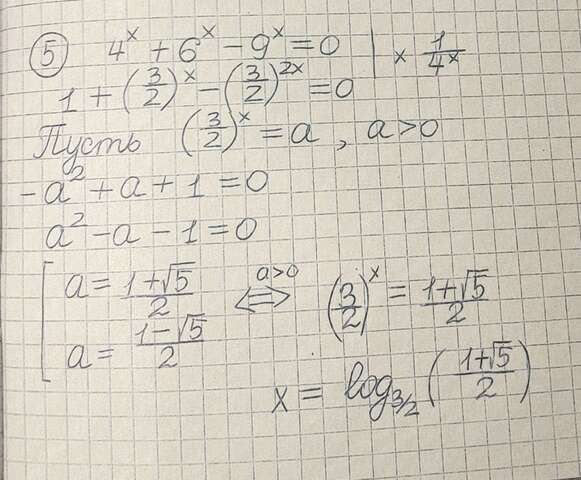 ⑤ 4ˣ + 6ˣ − 9ˣ = 0 | × 1/4ˣ
1 + (3/2)ˣ − (3/2)²ˣ = 0
Пусть (3/2)ˣ = a , a > 0
−a² + a + 1 = 0
a² − a − 1 = 0
[ a = (1+√5)/2
a = (1−√5)/2
a>0 ⟺ (3/2)ˣ = (1+√5)/2
x = log₃/₂ ( (1+√5)/2 )